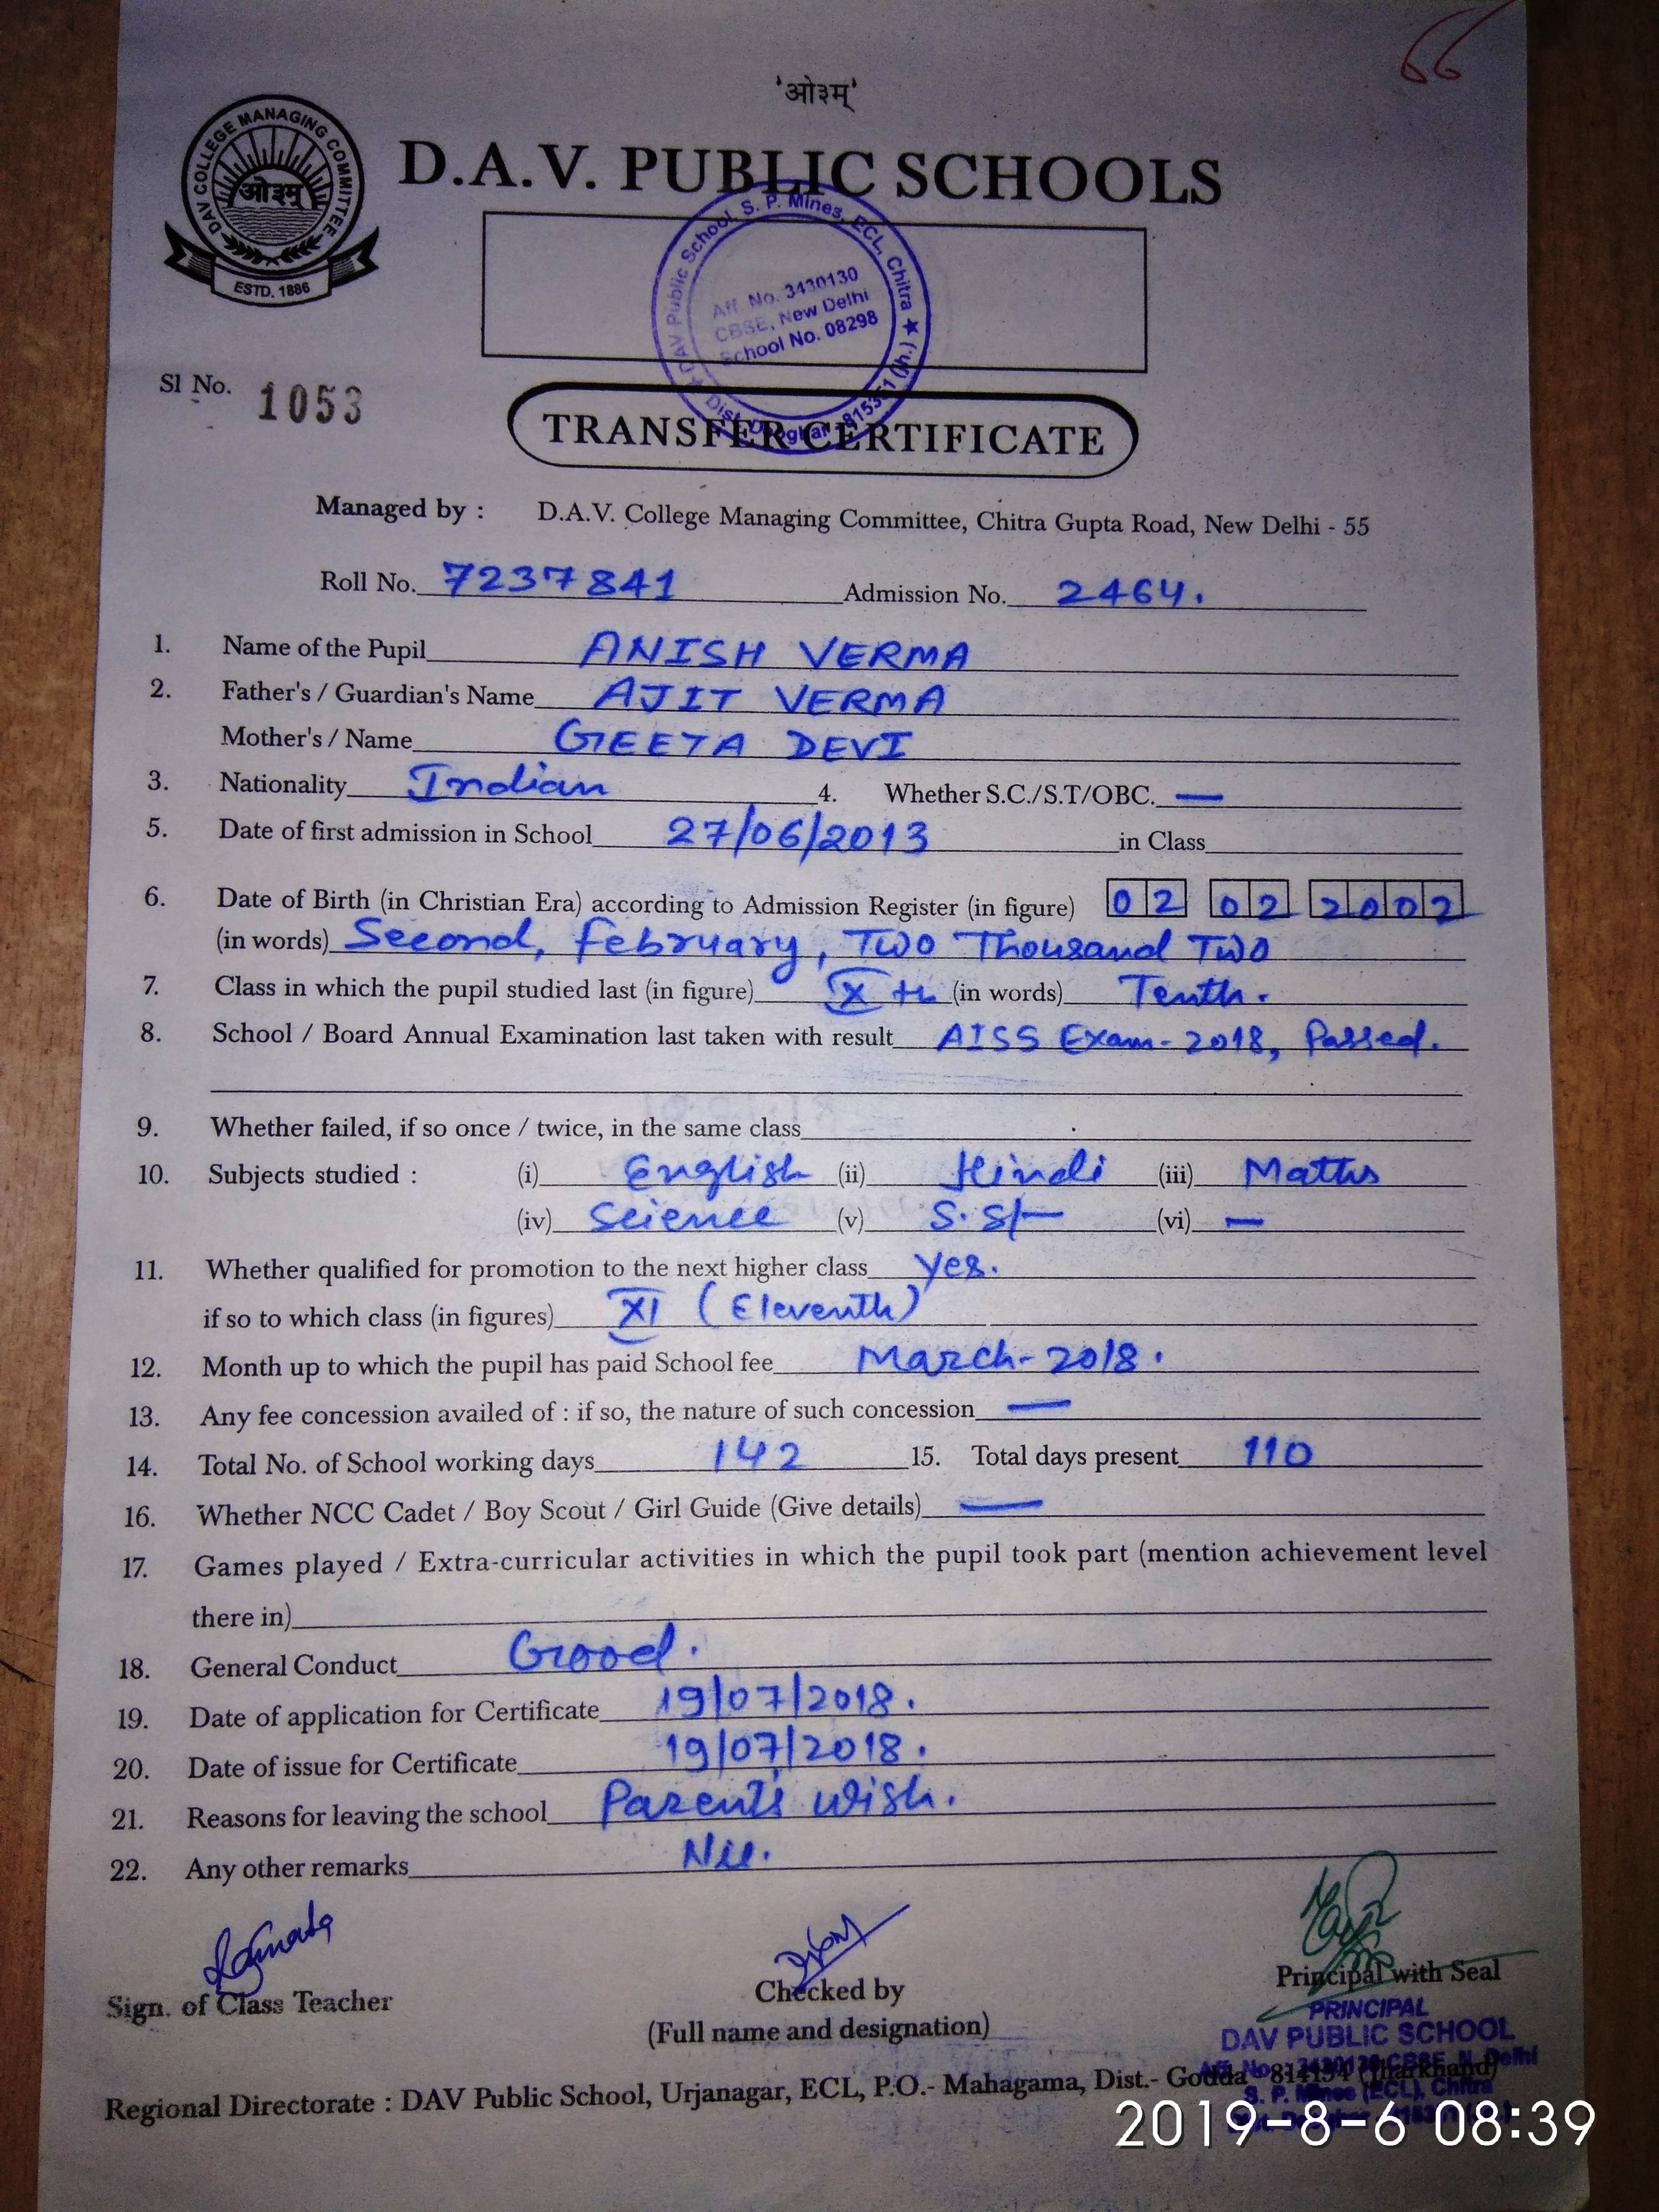 66
'ओ३म्'
DAV COLLEGE MANAGING COMMITTEE
ओ३म्
ESTD. 1886
D.A.V. PUBLIC SCHOOLS
DAV Public School, S. P. Mines, ECL, Chitra ★
Aff. No. 3430130
CBSE, New Delhi
School No. 08298
Dist. Deoghar - 815351 (Jh.)
Sl No. 1053
TRANSFER CERTIFICATE
Managed by : D.A.V. College Managing Committee, Chitra Gupta Road, New Delhi - 55
Roll No. 7237841 Admission No. 2464.
1. Name of the Pupil ANISH VERMA
2. Father's / Guardian's Name AJIT VERMA
Mother's / Name GEETA DEVI
3. Nationality Indian 4. Whether S.C./S.T/OBC. —
5. Date of first admission in School 27/06/2013 in Class
6. Date of Birth (in Christian Era) according to Admission Register (in figure) 02 02 2002
(in words) Second, February, Two Thousand Two
7. Class in which the pupil studied last (in figure) X th (in words) Tenth.
8. School / Board Annual Examination last taken with result AISS Exam - 2018, Passed.
9. Whether failed, if so once / twice, in the same class
10. Subjects studied : (i) English (ii) Hindi (iii) Maths
(iv) Science (v) S. St— (vi) —
11. Whether qualified for promotion to the next higher class Yes.
if so to which class (in figures) XI (Eleventh)
12. Month up to which the pupil has paid School fee March - 2018.
13. Any fee concession availed of : if so, the nature of such concession —
14. Total No. of School working days 142 15. Total days present 110
16. Whether NCC Cadet / Boy Scout / Girl Guide (Give details) —
17. Games played / Extra-curricular activities in which the pupil took part (mention achievement level
there in)
18. General Conduct Good.
19. Date of application for Certificate 19/07/2018.
20. Date of issue for Certificate 19/07/2018.
21. Reasons for leaving the school Parent's wish.
22. Any other remarks Nil.
Sign. of Class Teacher
Checked by
(Full name and designation)
Principal with Seal
PRINCIPAL
DAV PUBLIC SCHOOL
Aff. No. : 3430130 CBSE, N. Delhi
S. P. Mines (ECL), Chitra
Regional Directorate : DAV Public School, Urjanagar, ECL, P.O.- Mahagama, Dist.- Godda - 814154 (Jharkhand)
2019-8-6 08:39